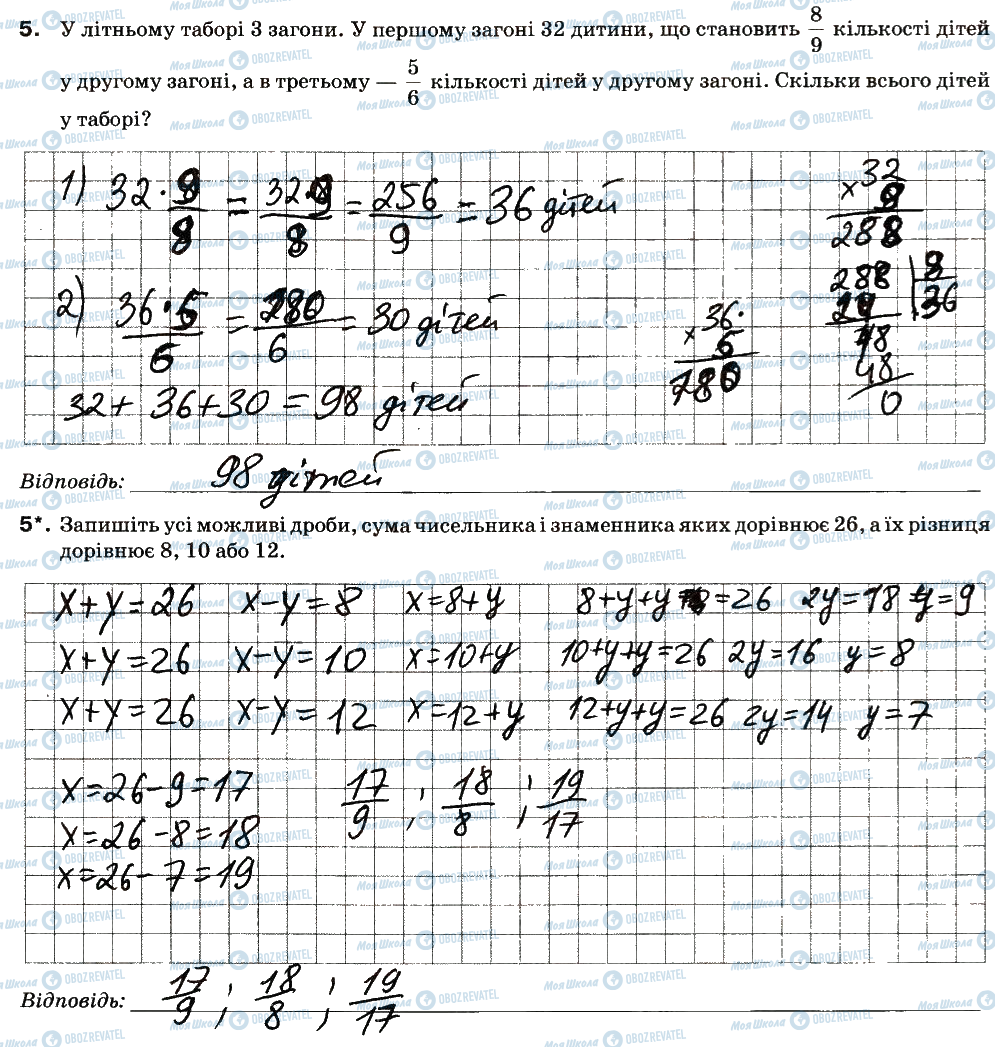 5. У літньому таборі 3 загони. У першому загоні 32 дитини, що становить 8/9 кількості дітей
у другому загоні, а в третьому — 5/6 кількості дітей у другому загоні. Скільки всього дітей
у таборі?
1) 32 · 9/8 = 32·9/8 = 256/9 = 36 дітей
32
× 9
288
288 | 8
24 | 36
48
48
0
2) 36·5/6 = 180/6 = 30 дітей
36
× 5
180
32 + 36 + 30 = 98 дітей
Відповідь: 98 дітей
5*. Запишіть усі можливі дроби, сума чисельника і знаменника яких дорівнює 26, а їх різниця
дорівнює 8, 10 або 12.
x+y=26 x-y=8 x=8+y 8+y+y=26 2y=18 y=9
x+y=26 x-y=10 x=10+y 10+y+y=26 2y=16 y=8
x+y=26 x-y=12 x=12+y 12+y+y=26 2y=14 y=7
x=26-9=17 17/9 ; 18/8 ; 19/17
x=26-8=18
x=26-7=19
Відповідь: 17/9 ; 18/8 ; 19/17
МояШкола OBOZREVATEL